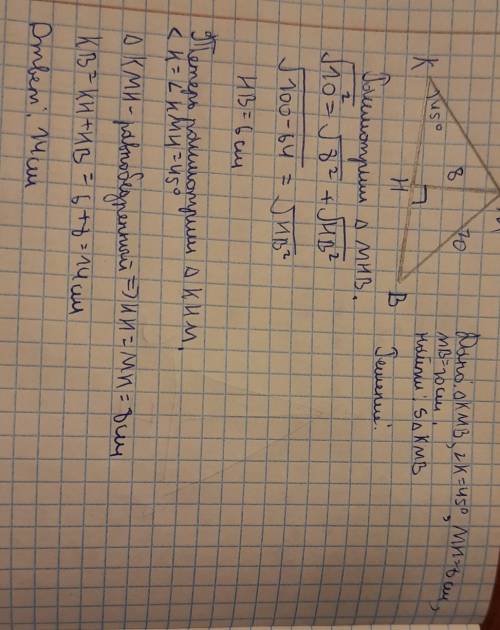 K
45°
H
8
10
B
Дано: ΔKMB, ∠K=45°, MH=8см,
MB=10см,
найти: SΔKMB
Решение:
Рассмотрим Δ MHB.
√10² = √8² + √HB²
√100-64 = √HB²
HB=6см
Теперь рассмотрим Δ KHM,
<K=∠KMH=45°
Δ KMH - равнобедренный => KH = MH = 8см
KB = KH + HB = 6 + 8 = 14см
Ответ: 14см